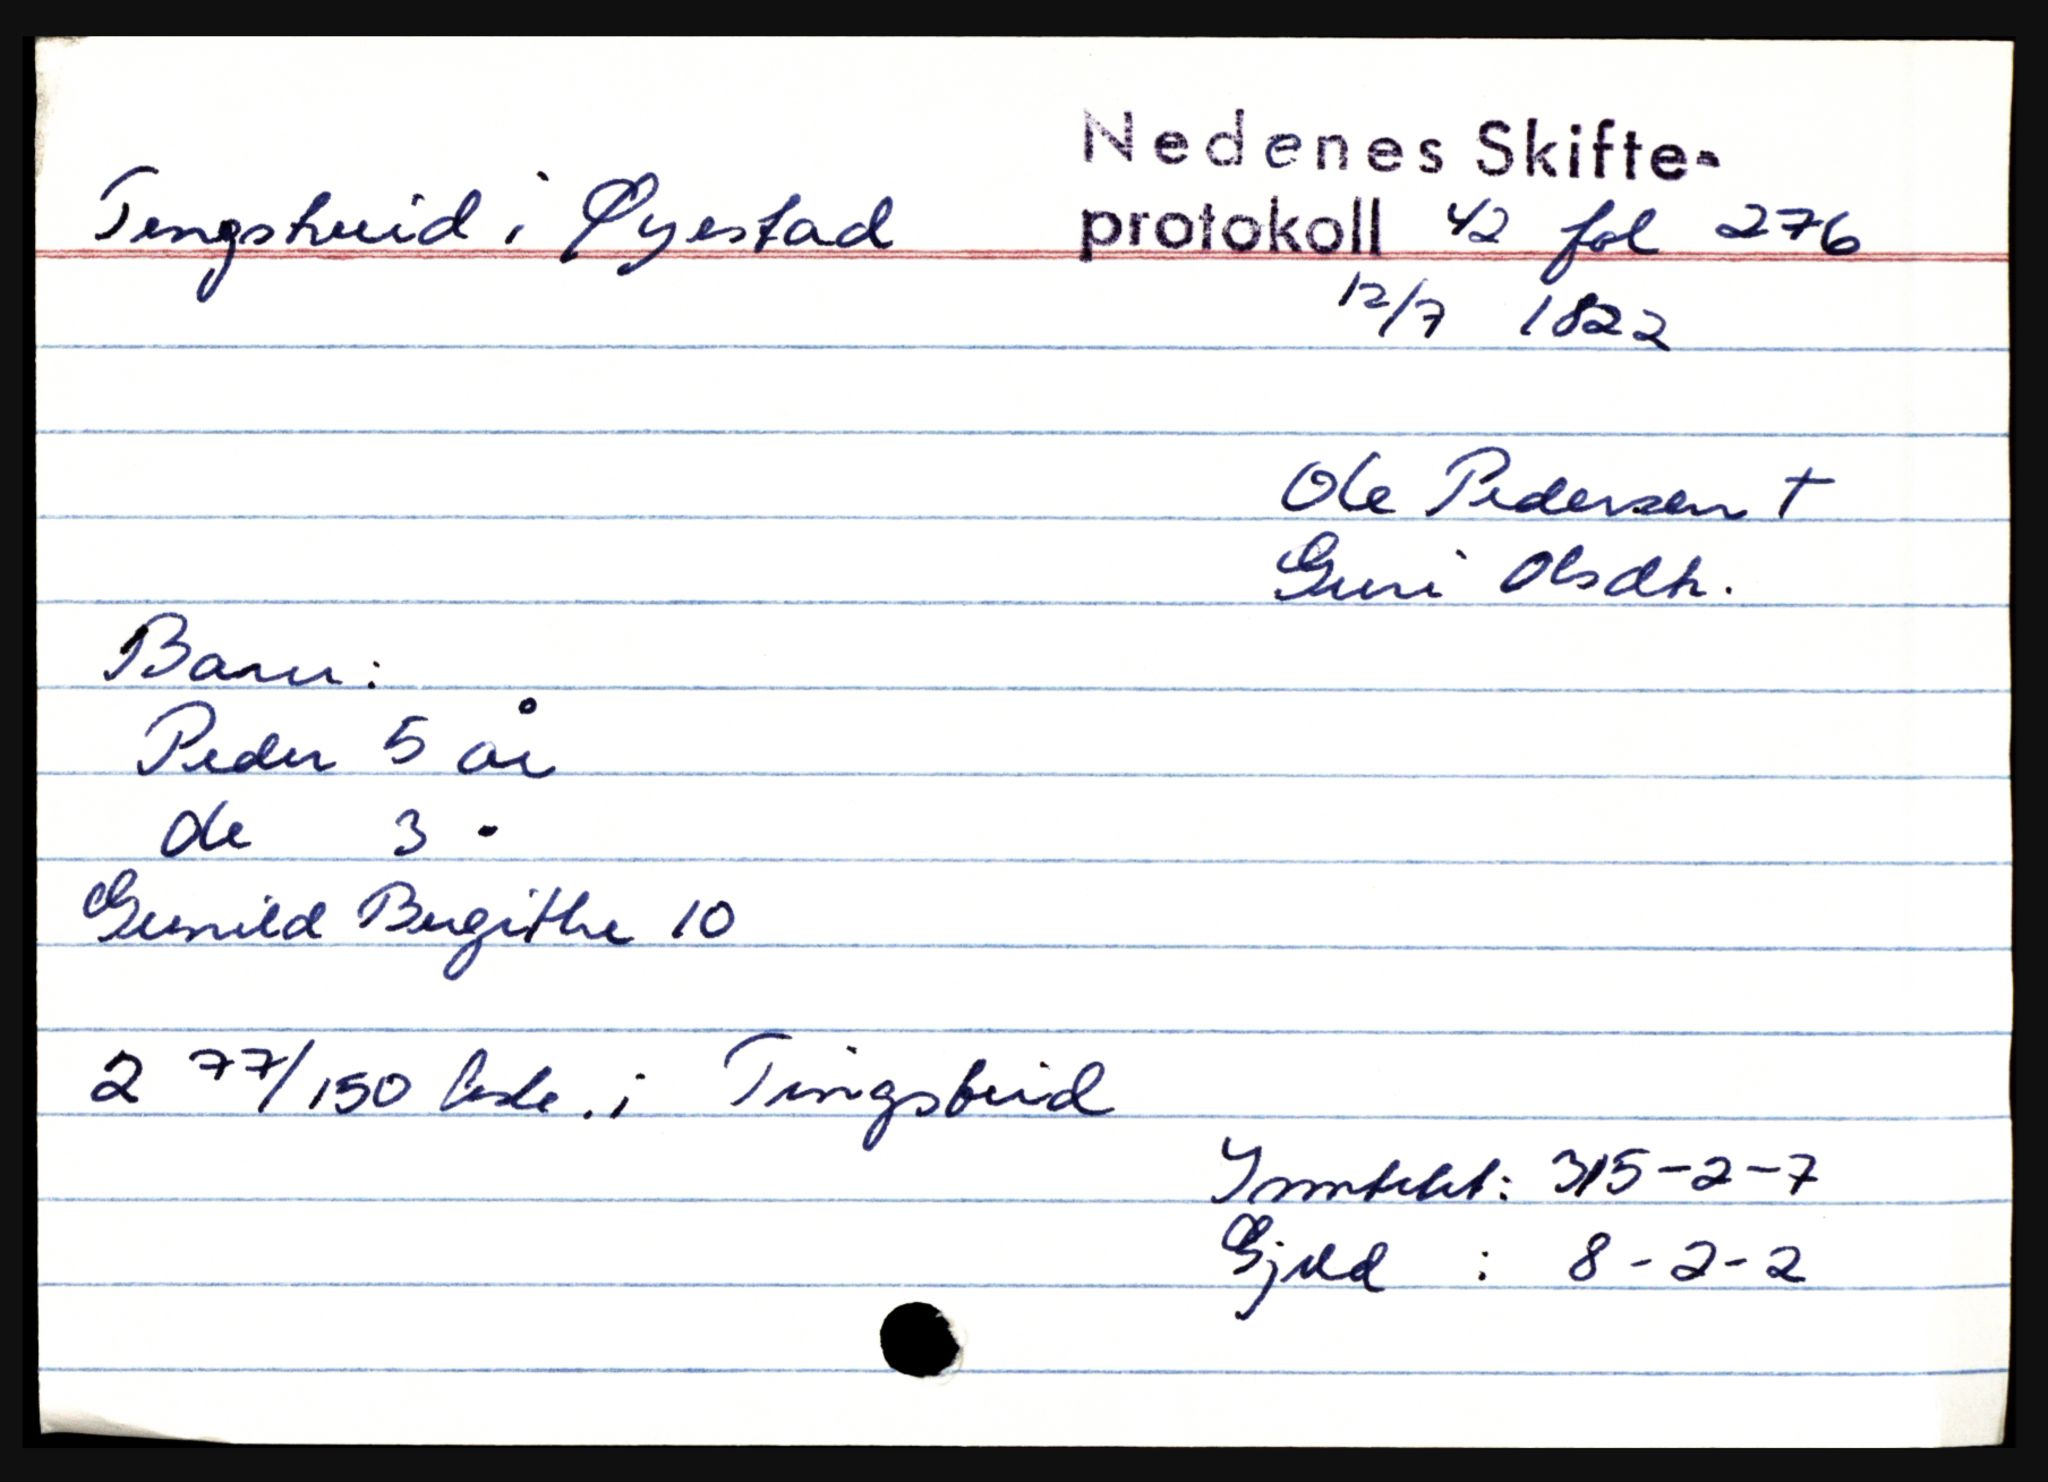 Nedenes Skifte-
Tengshuid i Øyestad protokoll 42 fol 276
12/7 1822
Ole Pedersen †
Guri Olsdtr.
Barn:
Peder 5 år
Ole 3 -
Gunild Birgithe 10
2 77/150 i Tingstuid
Inntekt: 315-2-7
Gjeld : 8-2-2